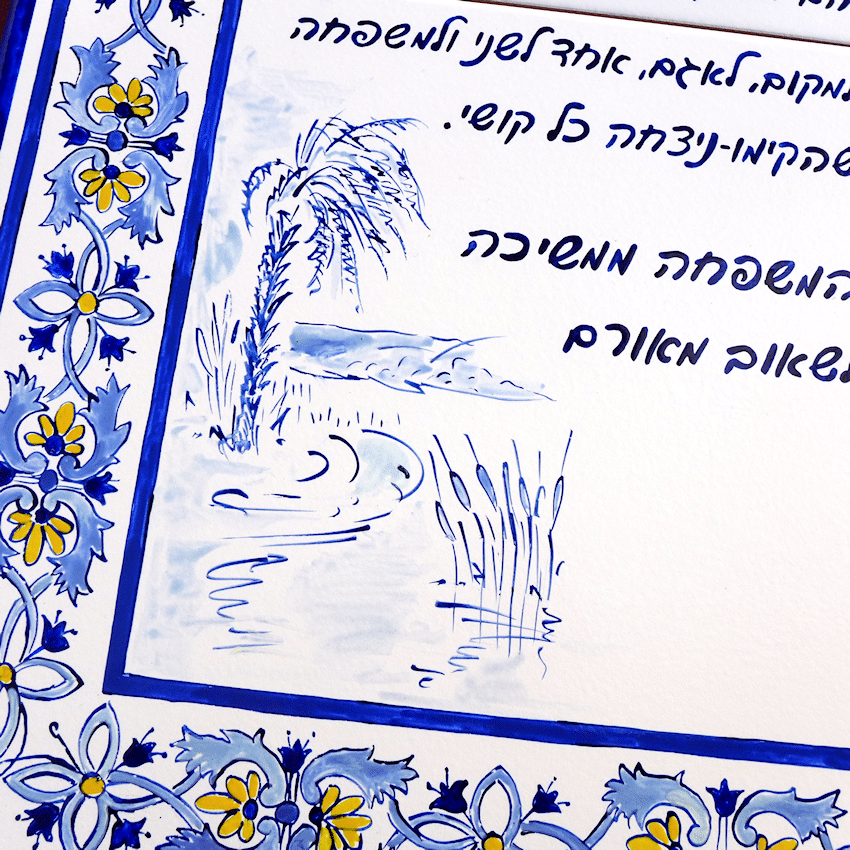 למקום, לאגם, אחד לשני ולמשפחה
שהקימו-ניצחה כל קושי.
המשפחה ממשיכה
לשאוב מאורם